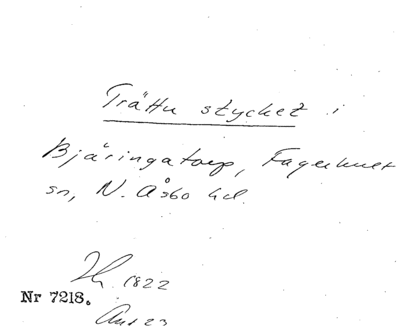 Trättu stycket i
Bjäringatorp, Fagerhult
sn, N. Åsbo hd.
1822
Nr 7218.
23